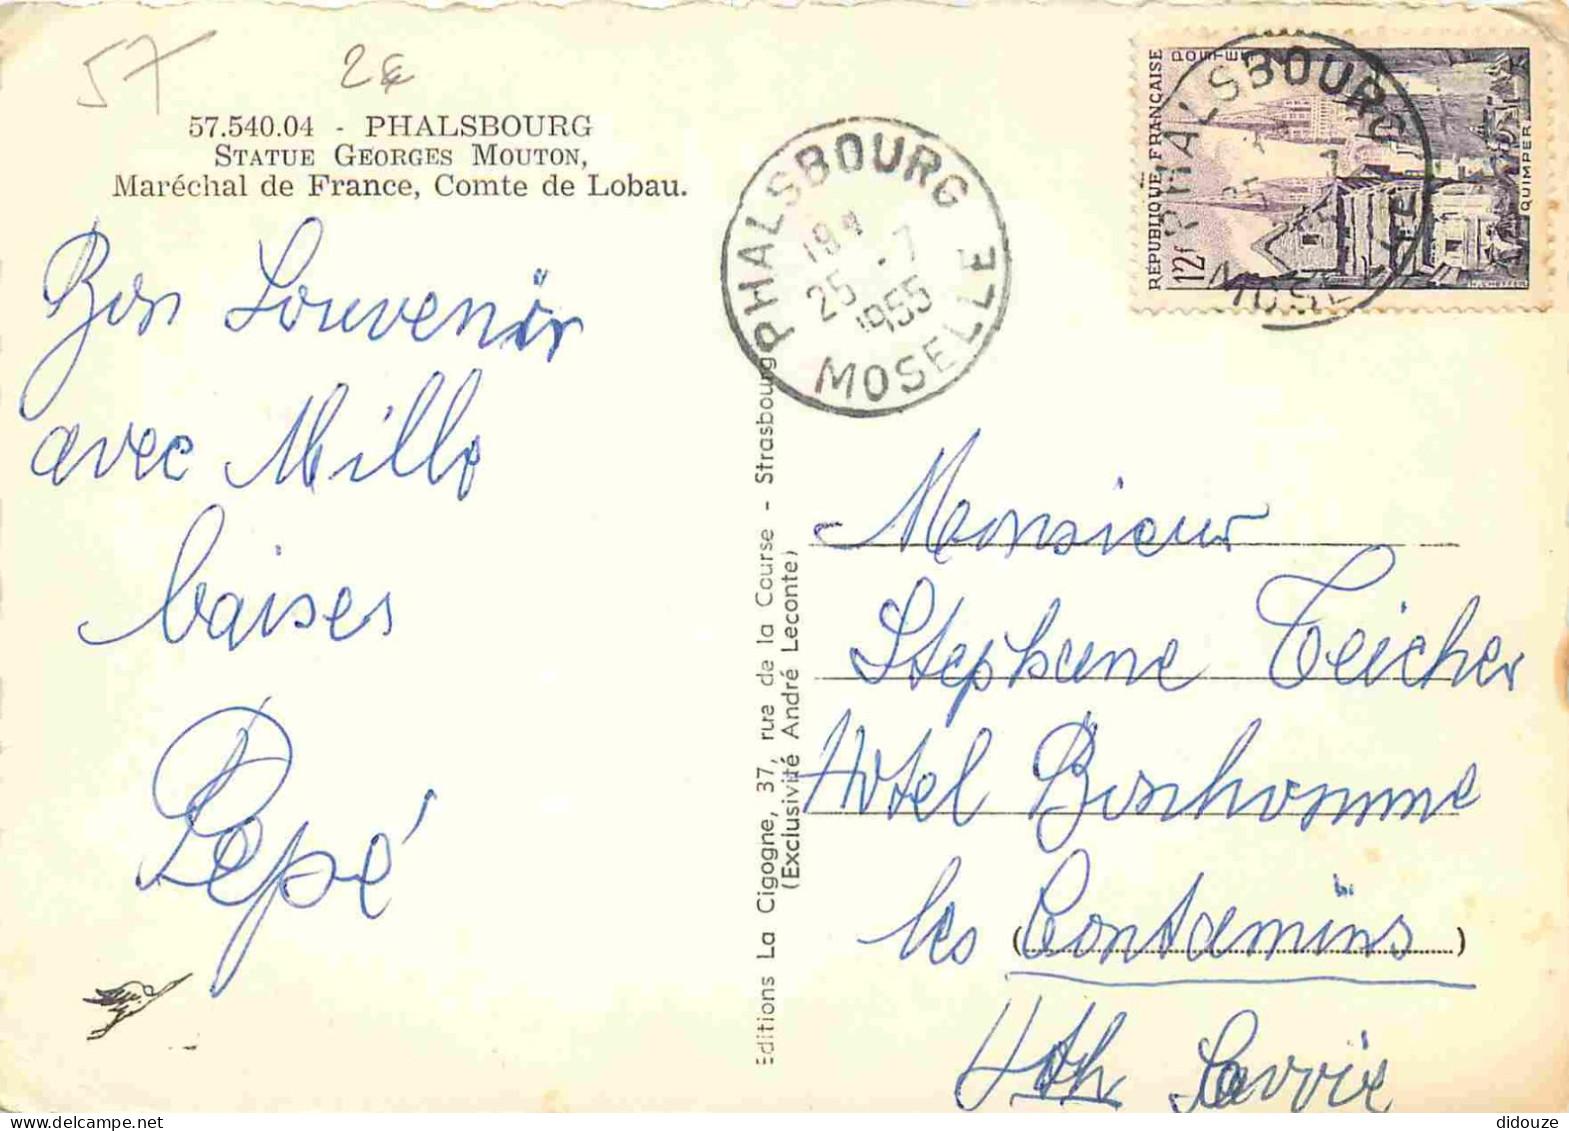 57
2€
57.540.04 - PHALSBOURG
STATUE GEORGES MOUTON,
Maréchal de France, Comte de Lobau.
Bon Souvenir
avec Mille
baises
Pépé
Editions La Cigogne, 37, rue de la Course - Strasbourg
(Exclusivité André Leconte)
PHALSBOURG
25 -7
1955
MOSELLE
RÉPUBLIQUE FRANÇAISE
POSTES
12f
QUIMPER
PHALSBOURG
MOSELLE
Monsieur
Stephane Teicher
Hotel Bonhomme
les (Contamins)
Hth Savoie
didouze